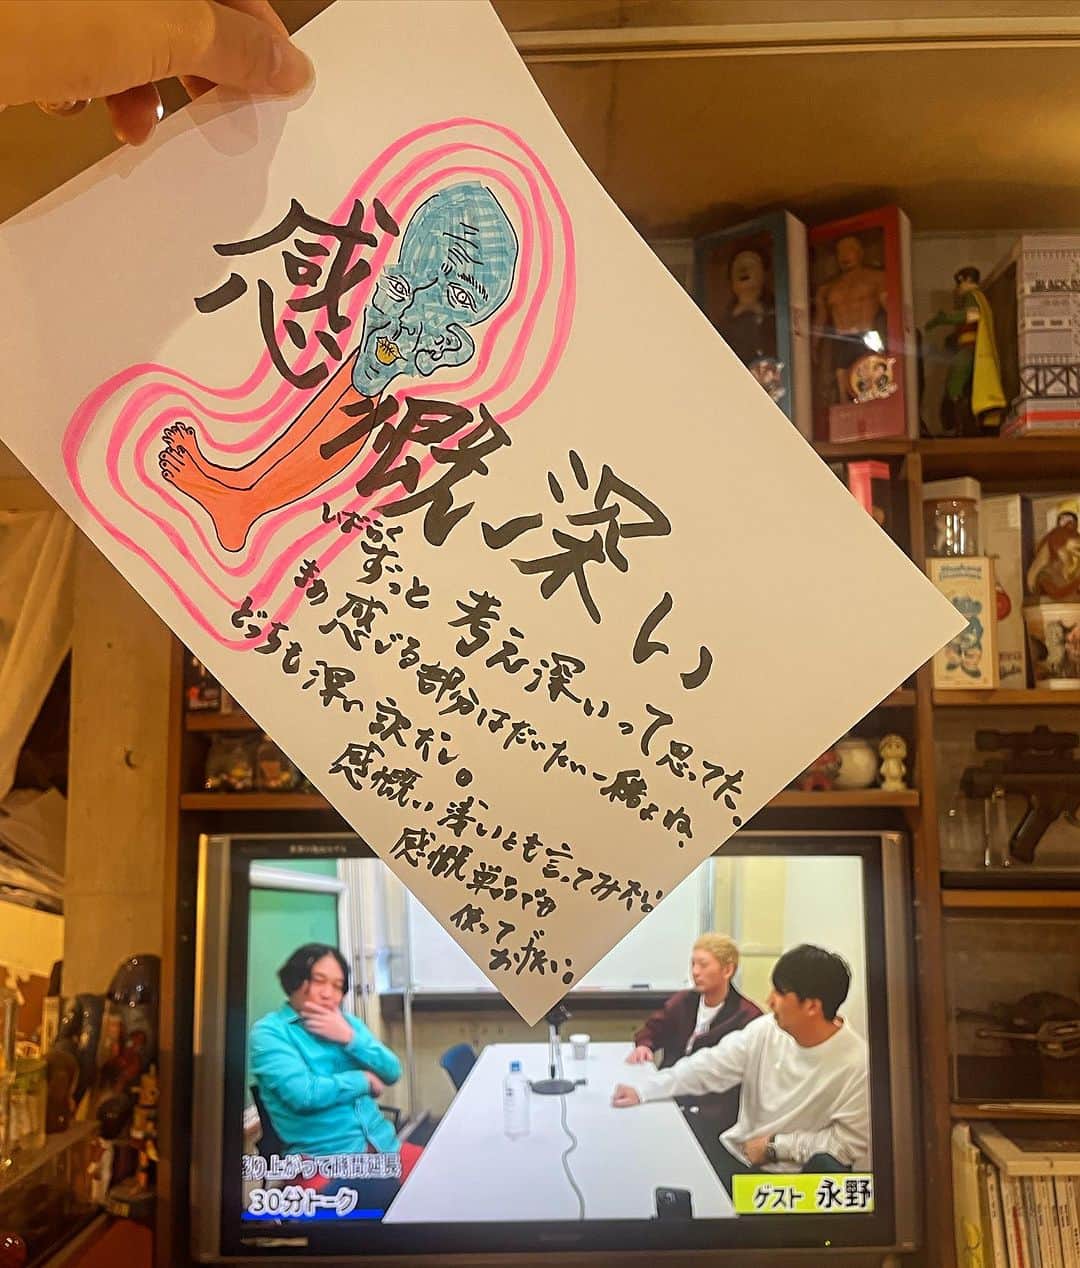 感慨深い
しばらく
ずっと考え深いって思ってた。
まぁ感じる部分はだいたい一緒よね、
どっちも深い訳だし。
感慨い薄いとも言ってみたい。
感慨単品でも
使って
あげたい。
盛り上がって時間延長
30分トーク
ゲスト 永野